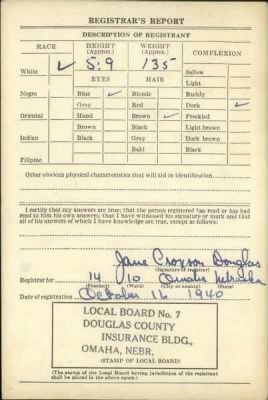 REGISTRAR'S REPORT
DESCRIPTION OF REGISTRANT
RACE HEIGHT (Approx.) WEIGHT (Approx.) COMPLEXION
White ✓ 5:9 135 Sallow
Light
EYES HAIR
Negro Blue ✓ Blonde Ruddy
Gray Red Dark ✓
Oriental Hazel Brown ✓ Freckled
Brown Black Light brown
Indian Black Gray Dark brown
Bald Black
Filipino
Other obvious physical characteristics that will aid in identification
I certify that my answers are true; that the person registered has read or has had read to him his own answers; that I have witnessed his signature or mark and that all of his answers of which I have knowledge are true, except as follows:
Jane Croxson Douglas
(Signature of registrar)
Registrar for 14 10 Omaha Nebraska
(Precinct) (Ward) (City or county) (State)
Date of registration October 16 1940
LOCAL BOARD No. 7
DOUGLAS COUNTY
INSURANCE BLDG.,
OMAHA, NEBR.
(STAMP OF LOCAL BOARD)
(The stamp of the Local Board having jurisdiction of the registrant
shall be placed in the above space.)